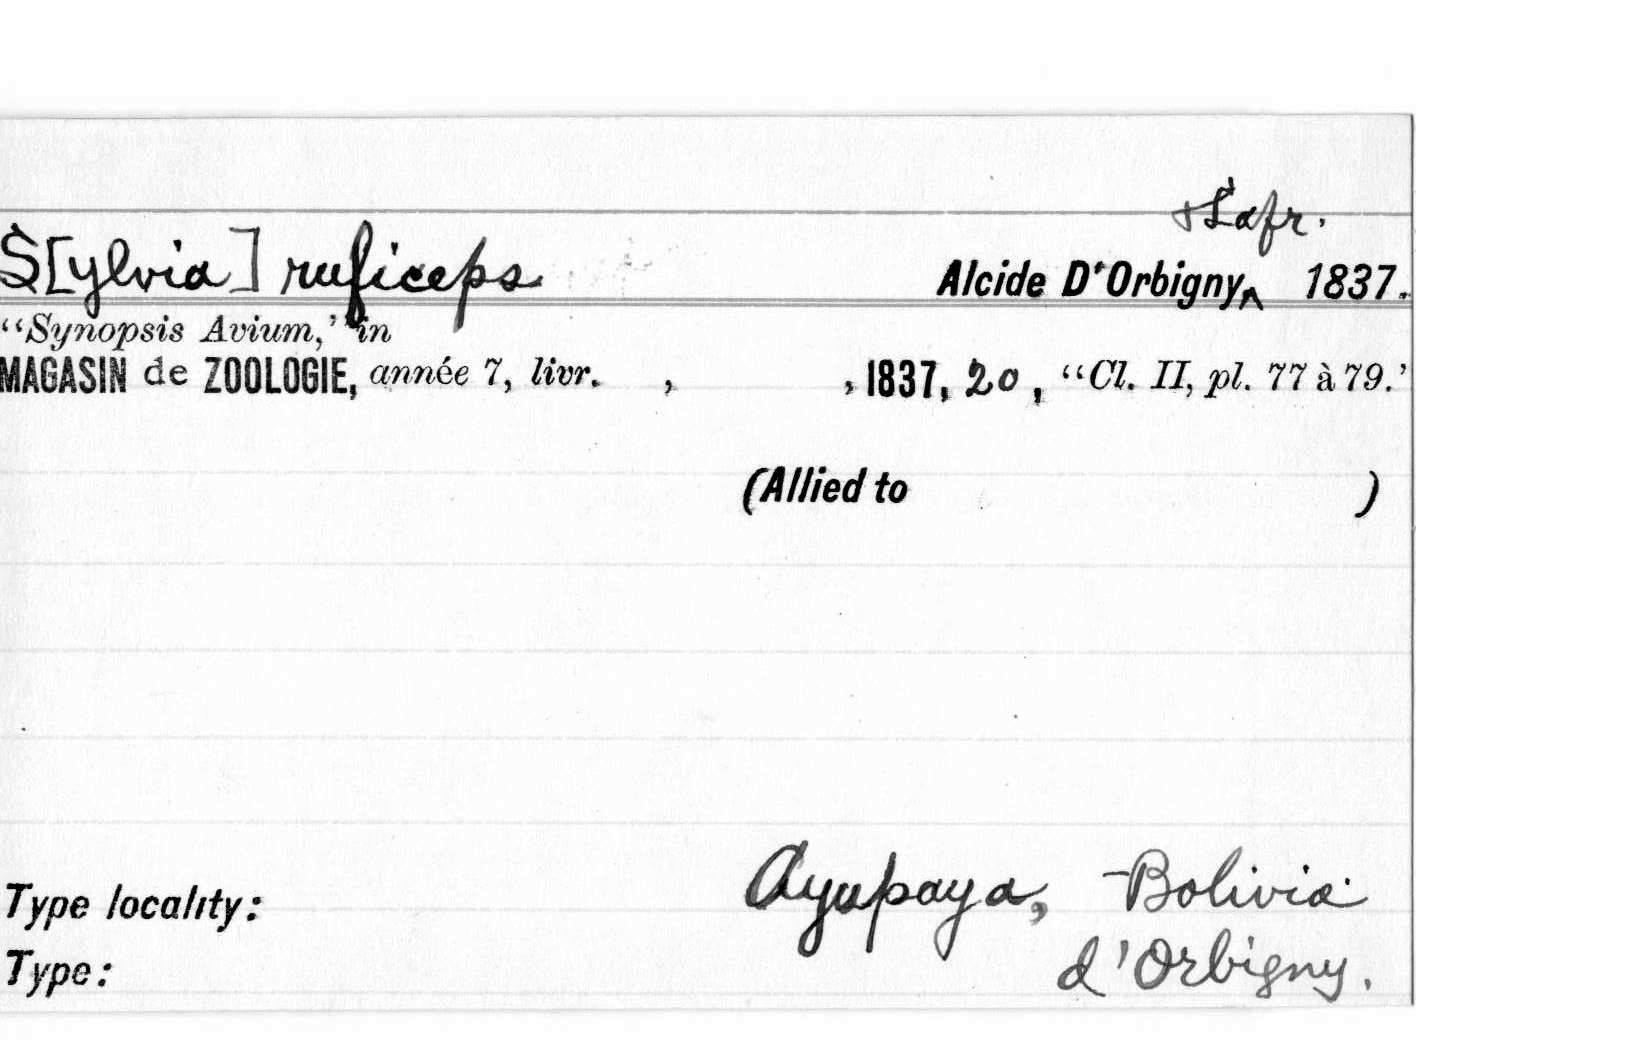 & Lafr.
S[ylvia] ruficeps Alcide D'Orbigny, 1837.
“Synopsis Avium,” in
MAGASIN de ZOOLOGIE, année 7, livr. , , 1837, 20, “Cl. II, pl. 77 à 79.’
(Allied to )
Type locality: Ayupaya, Bolivia
Type: d'Orbigny.